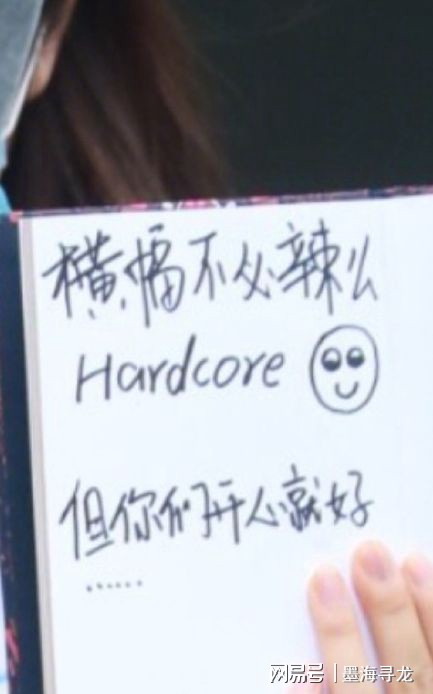 横幅不必辣么
Hardcore
但你们开心就好
......
网易号 | 墨海寻龙